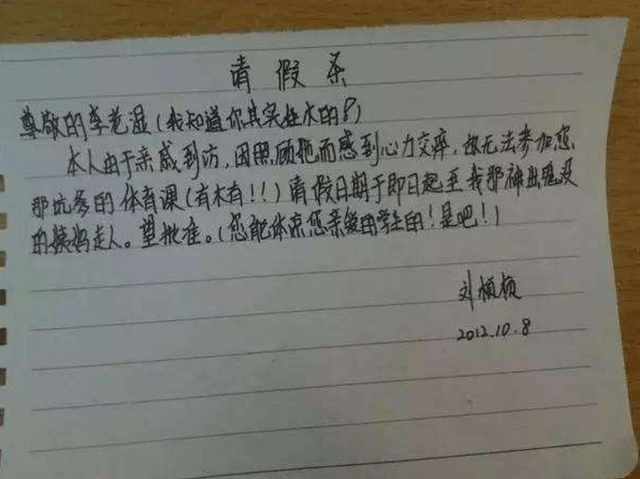 请假条
尊敬的李老湿(我知道你其实姓木的!)
本人由于亲戚到访,因照顾她而感到心力交瘁,故无法参加您
那坑爹的体育课(有木有!!)请假日期于即日起至我那神出鬼没
的姨妈走人。望批准。(您能体谅您亲爱的学生的!是吧!)
刘顿顿
2012.10.8